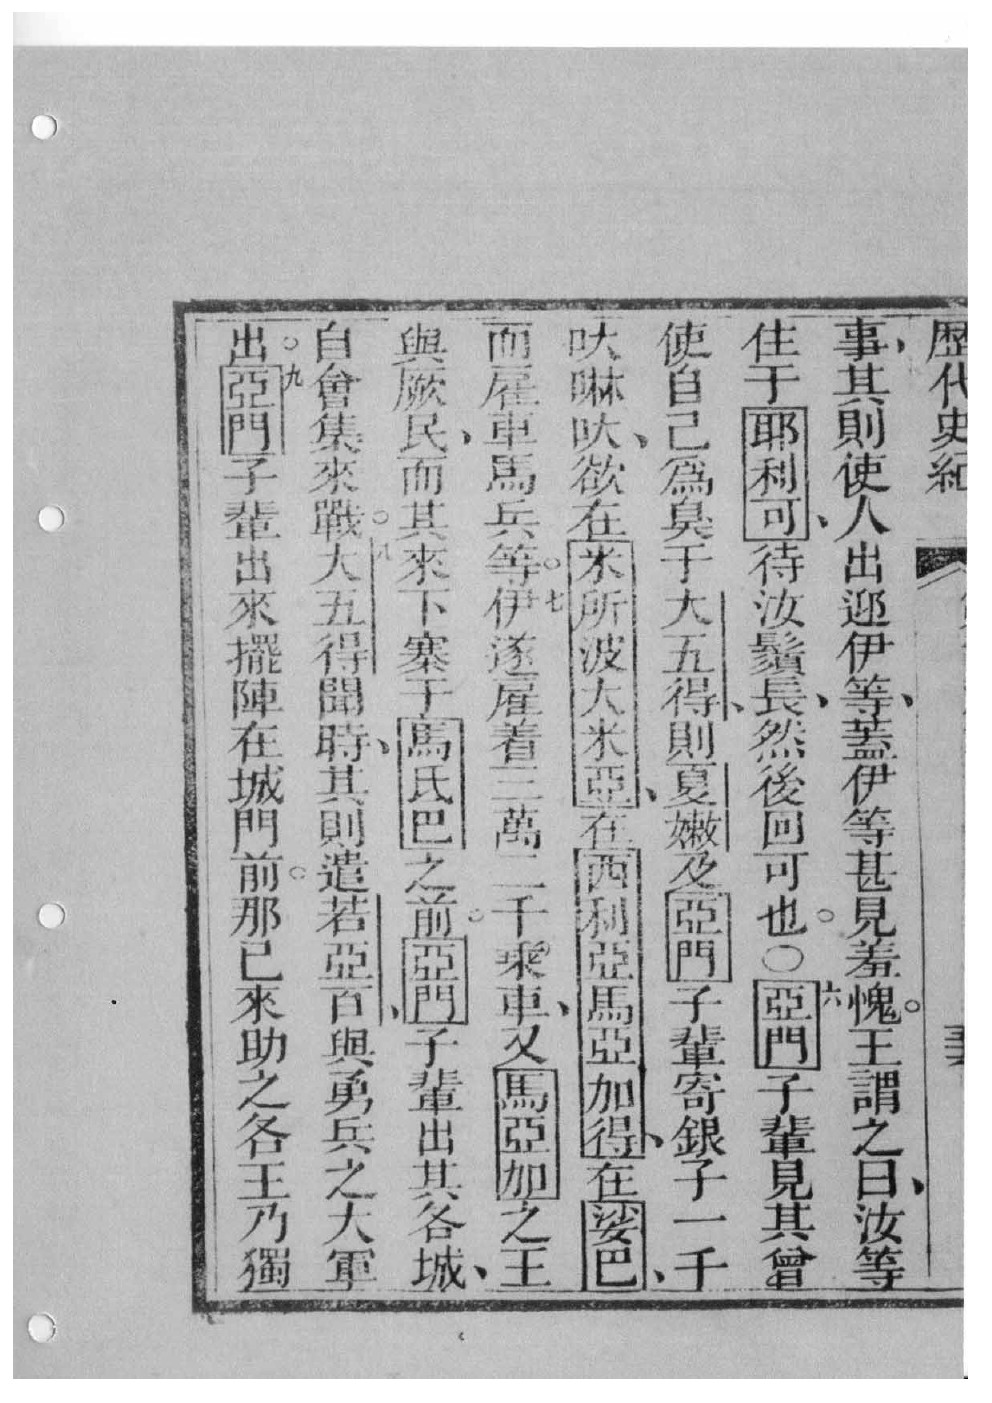 歷代史紀
事、其則使人出迎伊等、蓋伊等甚見羞愧。王謂之曰、汝等
住于耶利可、待汝鬚長、然後回可也。〇六亞門子輩見其曾
使自己爲臭于大五得、則夏嫩及亞門子輩寄銀子一千
呔㖫呔、欲在米所波大米亞、在西利亞馬亞加得、在娑巴、
而雇車馬兵等。七伊遂雇着三萬二千乘車、又馬亞加之王
與厥民、而其來下寨于馬氏巴之前。亞門子輩出其各城、
自會集來戰。八大五得聞時、其則遣若亞百、與勇兵之大軍
出。九亞門子輩出來擺陣在城門前。那已來助之各王乃獨